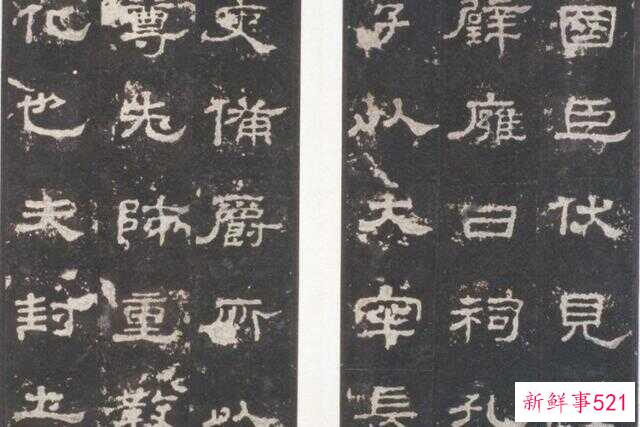 國臣伏見
璧廱日祠孔
子以大牢長
吏備爵所以
尊先師重教
化也夫封土
新鲜事521